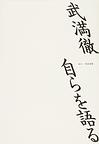 武満徹
自らを語る